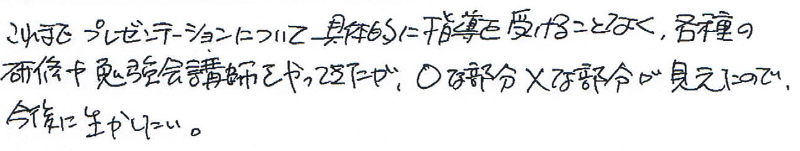 これまで プレゼンテーションについて 具体的に指導を受けることなく、各種の
研修や勉強会講師をやってきたが、○な部分×な部分が見えたので、
今後に生かしたい。